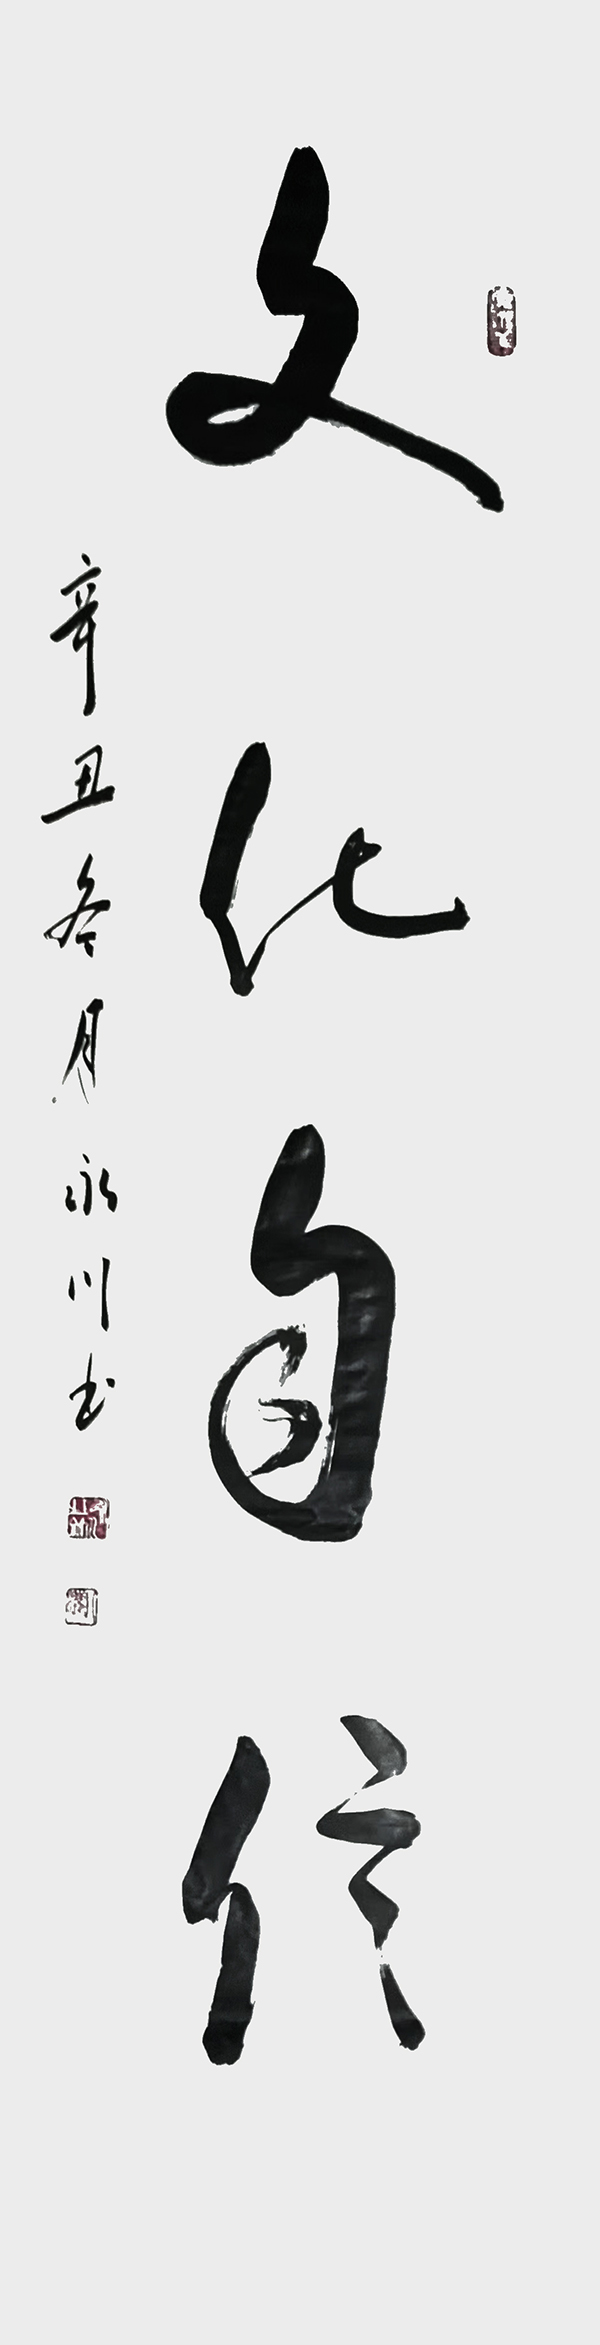 文化自信
辛丑冬月永川书